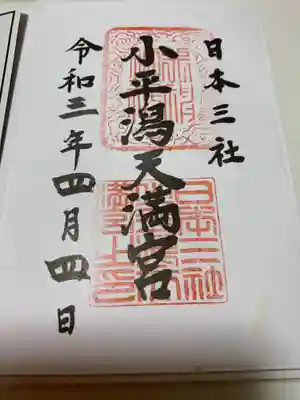 日本三社
小平潟天満宮
令和三年四月四日
日本三社